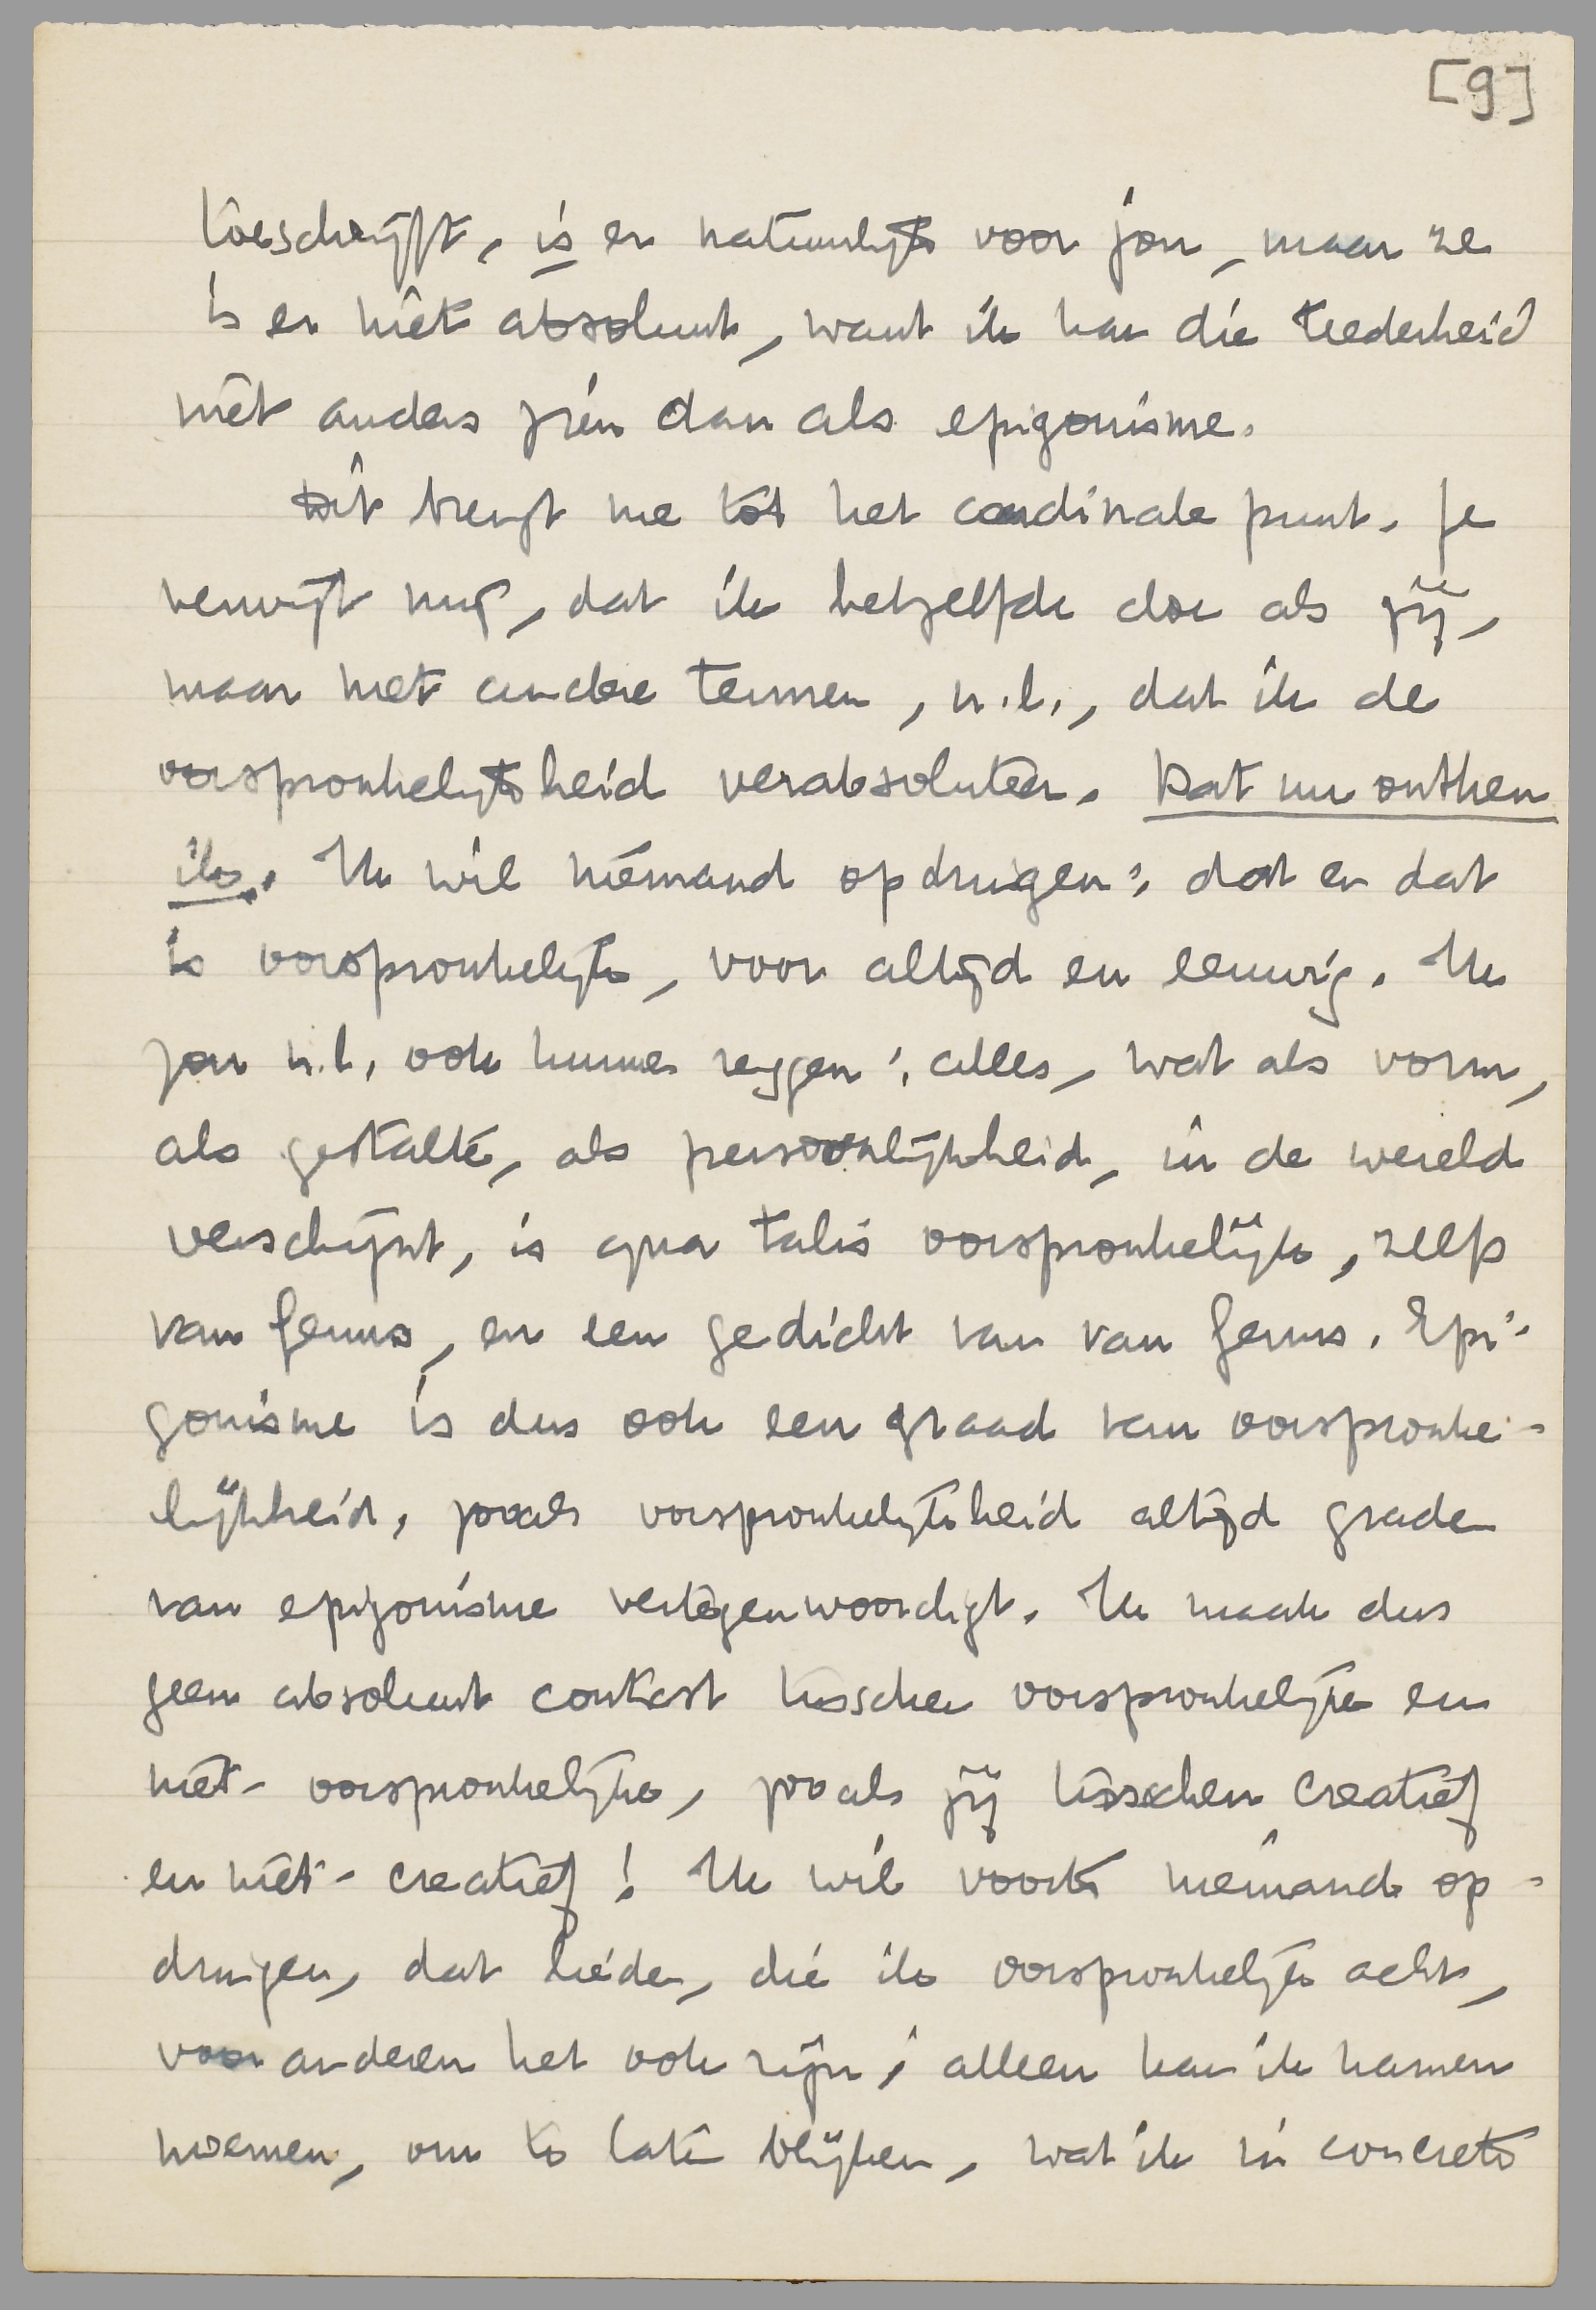 [9]
toeschrijft, is er natuurlijk voor jou, maar ze
is er niet absoluut, want ik kan die teederheid
niet anders zien dan als epigonisme.
Dit brengt me tot het cardinale punt. Je
verwijt mij, dat ik hetzelfde doe als jij,
maar met andere termen, n.l., dat ik de
oorspronkelijkheid verabsoluteer. Dat nu ontken
ik. Ik wil niemand opdringen: dat en dat
is oorspronkelijk, voor altijd en eeuwig. Ik
zou n.l. ook kunnen zeggen: alles, wat als vorm,
als gestalte, als persoonlijkheid, in de wereld
verschijnt, is qua talis oorspronkelijk, zelfs
van Genus, en een gedicht van van Genus. Epi-
gonisme is dus ook een graad van oorspronke-
lijkheid, zooals oorspronkelijkheid altijd graden
van epigonisme vertegenwoordigt. Ik maak dus
geen absoluut contrast tusschen oorspronkelijk en
niet-oorspronkelijk, zooals jij tusschen creatief
en niet-creatief! Ik wil voorts niemand op-
dringen, dat lieden, die ik oorspronkelijk acht,
voor anderen het ook zijn; alleen kan ik namen
noemen, om te laten blijken, wat ik in concreto